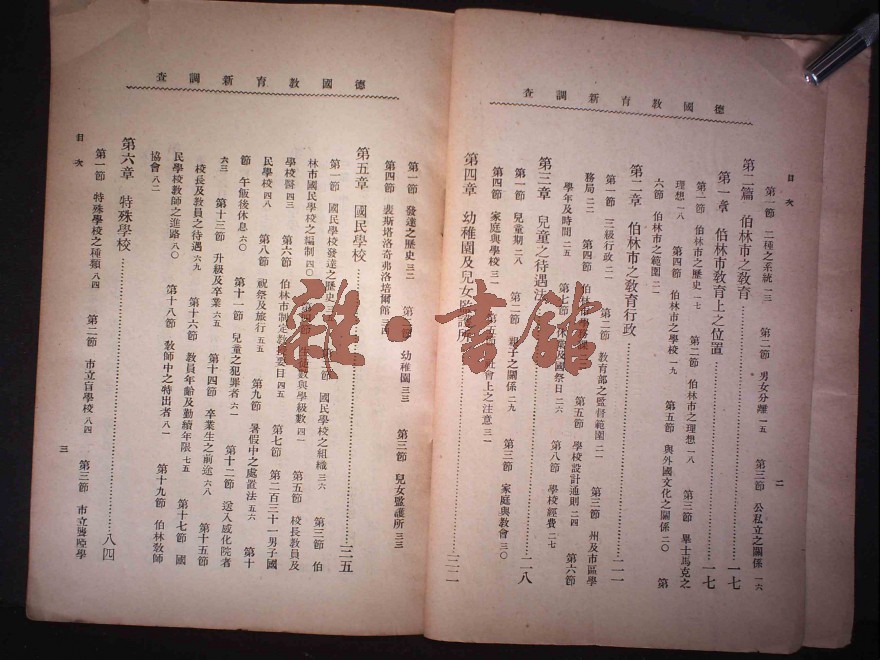 德國教育新調查
目次
二
第一節 二種之系統一三 第二節 男女分離一五 第三節 公私立之關係一六
第二篇 伯林市之教育……一七
第一章 伯林市教育上之位置……一七
第一節 伯林市之歷史一七 第二節 伯林市之理想一八 第三節 畢士馬克之
理想一八 第四節 伯林市之學校一九 第五節 與外國文化之關係二〇 第
六節 伯林市之範圍二一
第二章 伯林市之教育行政……二一
第一節 三級行政二一 第二節 教育部之監督範圍二一 第三節 州及市區學
務局二二 第四節 伯林市 第五節 學校設計通則二四 第六節
學年及時間二五 第七節 及國祭日二六 第八節 學校經費二七
第三章 兒童之待遇法……二八
第一節 兒童期二八 第二節 親子之關係二九 第三節 家庭與教會三〇
第四節 家庭與學校三一 第五節 社會上之注意三一
第四章 幼稚園及兒女監護所……三二
德國教育新調查
第一節 發達之歷史三二 第二節 幼稚園三三 第三節 兒女監護所三三
第四節 裴斯塔洛奇弗洛培爾館三四
第五章 國民學校……三五
第一節 國民學校發達之歷史 第二節 國民學校之組織三六 第三節 伯
林市國民學校之編制四〇 第四節 數與學級數四一 第五節 校長教員及
學校醫四三 第六節 伯林市制定教授要目四五 第七節 第二百三十一男子國
民學校四八 第八節 祝祭及旅行五五 第九節 暑假中之處置法五六 第十
節 午飯後休息六〇 第十一節 兒童之犯罪者六一 第十二節 送入感化院者
六三 第十三節 升級及卒業六五 第十四節 卒業生之前途六八 第十五節
校長及教員之待遇六九 第十六節 教員年齡及勤續年限七五 第十七節 國
民學校教師之進路八〇 第十八節 教師中之特出者八一 第十九節 伯林教師
協會八二
第六章 特殊學校……八四
第一節 特殊學校之種類八四 第二節 市立盲學校八四 第三節 市立聾啞學
目次
三
雜·書館